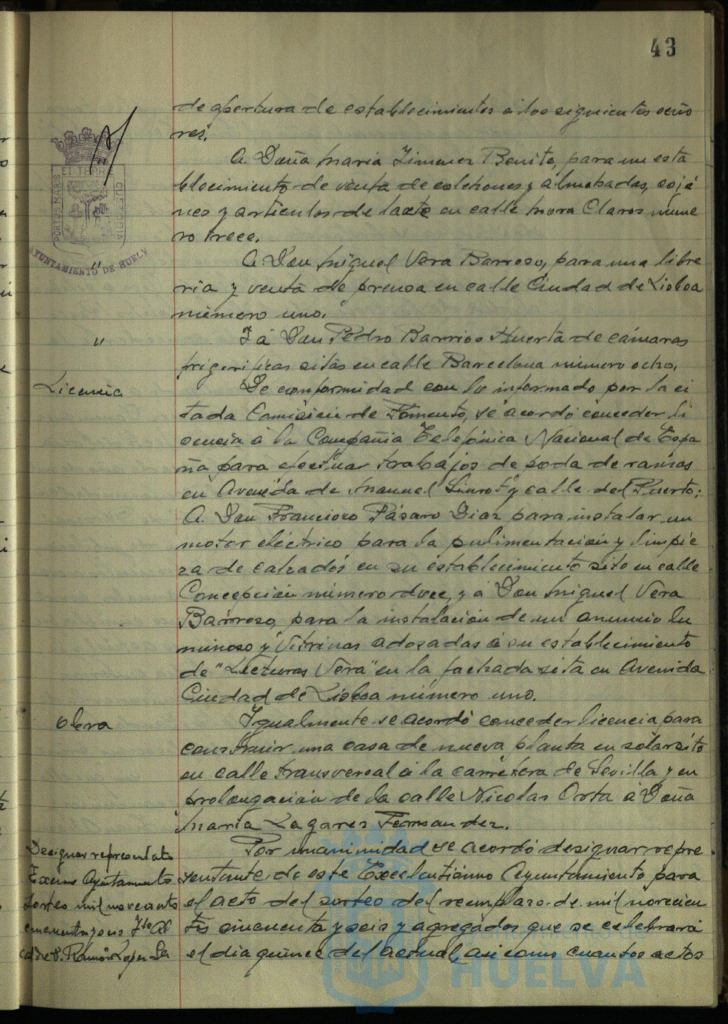 43
de apertura de establecimientos a los siguientes seño
res.
A Doña María Jimenez Benito, para un esta
blecimiento de venta de colchones y almohadas, cojí
nes y articulos de en calle Mora Claros núme
ro trece.
"
A Don Miguel Vera Barroso, para una libre
ria y venta de prensa en calle Ciudad de Lisboa
número uno.
"
Y á Don Pedro Barrios Huerta de cámaras
frigorificas sitas en calle Barcelona número ocho.
Licencia
De conformidad con lo informado por la ci
tada Comisión de Fomento, se acordó conceder li
cencia á la Compañia Telefónica Nacional de Espa
ña para efectuar trabajos de poda de ramas
en Avenida de Manuel Siurot y calle del Puerto;
A Don Francisco Pásaro Diaz para instalar un
motor eléctrico para la pulimentación y limpie
za de calzados en su establecimiento sito en calle
Concepción número doce, y á Don Miguel Vera
Barroso, para la instalación de un anuncio lu
minoso y Vitrinas adosadas á su establecimiento
de "Lecturas Vera" en la fachada sita en Avenida
Ciudad de Lisboa número uno.
Obra
Igualmente se acordó conceder licencia para
construir una casa de nueva planta en solar sito
en calle transversal á la carretera de Sevilla y en
prolongación de la calle Nicolas Orta á Doña
María Lagares Fernandez.
Designar representante
Excmo Ayuntamiento
sorteo mil novecientos
cincuenta y seis Tte Al
calde S. Ramón Lopez
Por unanimidad se acordó designar repre
sentante de este Excelentísimo Ayuntamiento para
el acto del sorteo del reemplazo de mil novecien
tos cincuenta y seis y agregados que se celebrará
el dia quince del actual, asi como cuantos actos
AYUNTAMIENTO DE HUELVA
HUELVA